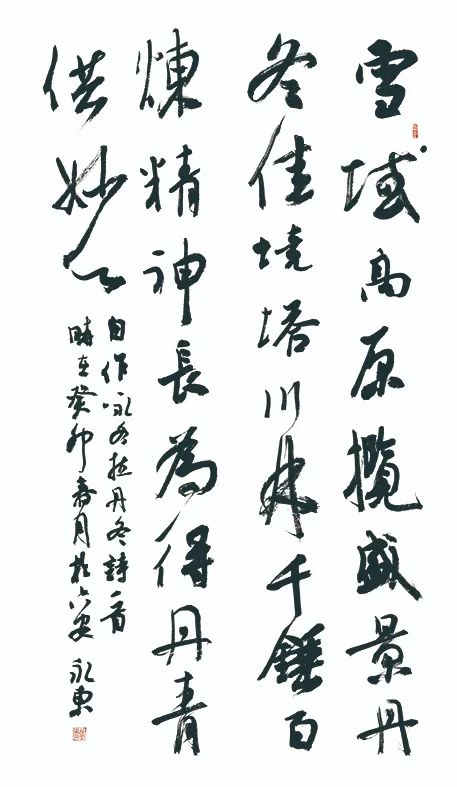 雪域高原攬盛景丹
冬佳境塔川林千錘百
煉精神長為得丹青
供妙心
自作詠各拉丹冬詩一首
時在癸卯月於六安 永東